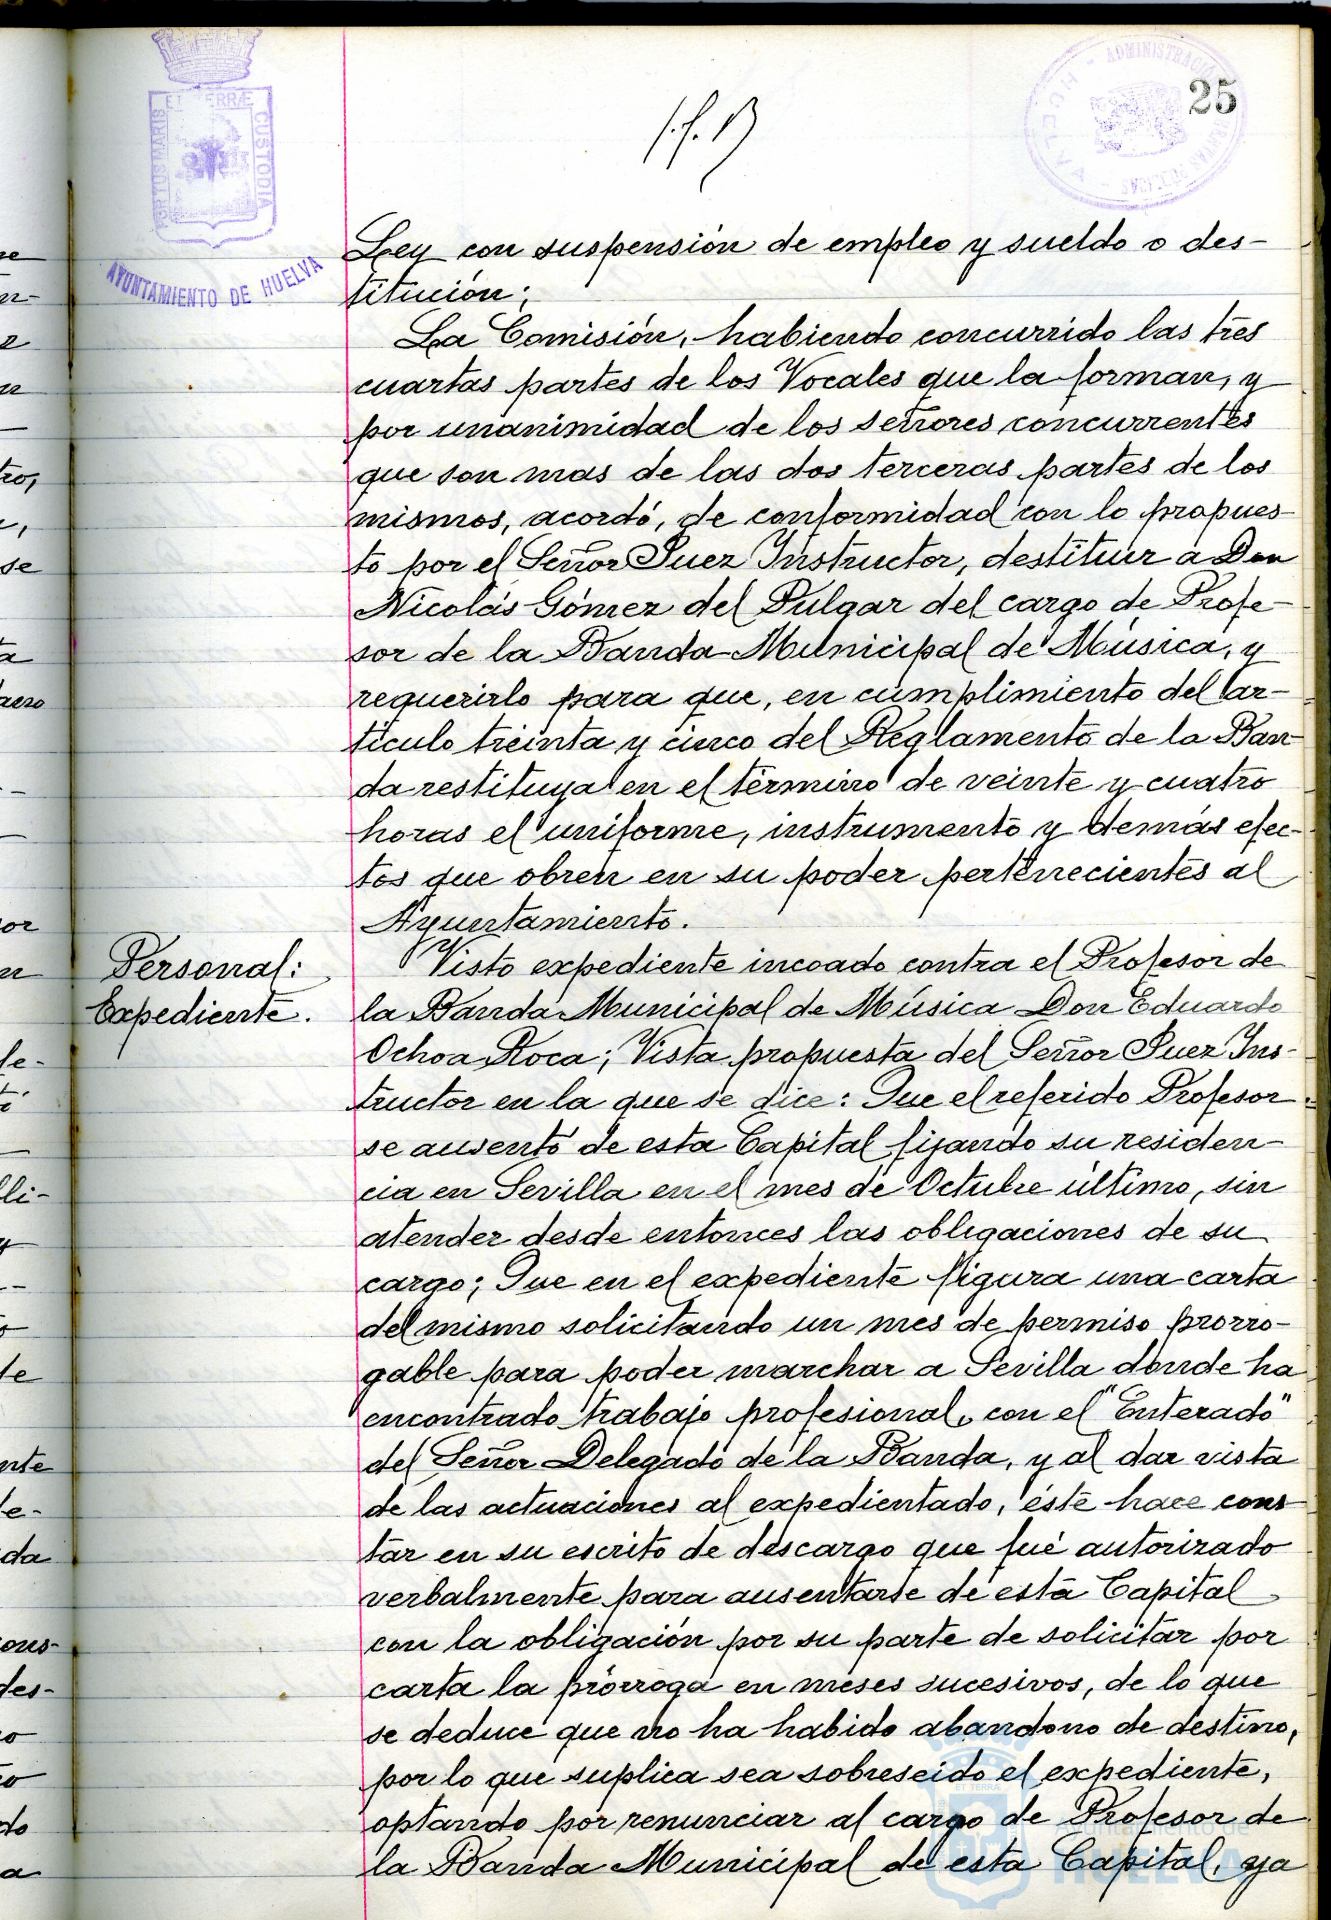 25
PORTUS MARIS ET TERRÆ CUSTODIA
AYUNTAMIENTO DE HUELVA
ADMINISTRACIÓN
HUELVA
Ley con suspensión de empleo y sueldo o des-
titución;
La Comisión, habiendo concurrido las tres
cuartas partes de los Vocales que la forman, y
por unanimidad de los señores concurrentes
que son mas de las dos terceras partes de los
mismos, acordó, de conformidad con lo propues-
to por el Señor Juez Instructor, destituir a Don
Nicolás Gómez del Pulgar del cargo de Profe-
sor de la Banda Municipal de Música, y
requerirlo para que, en cumplimiento del ar-
tículo treinta y cinco del Reglamento de la Ban-
da restituya en el término de veinte y cuatro
horas el uniforme, instrumento y demás efec-
tos que obren en su poder pertenecientes al
Ayuntamiento.
Personal:
Expediente.
Visto expediente incoado contra el Profesor de
la Banda Municipal de Música Don Eduardo
Ochoa Roca; Vista propuesta del Señor Juez Ins-
tructor en la que se dice: Que el referido Profesor
se ausentó de esta Capital fijando su residen-
cia en Sevilla en el mes de Octubre último, sin
atender desde entonces las obligaciones de su
cargo; Que en el expediente figura una carta
del mismo solicitando un mes de permiso prorro-
gable para poder marchar a Sevilla donde ha
encontrado trabajo profesional, con el "Enterado"
del Señor Delegado de la Banda, y al dar vista
de las actuaciones al expedientado, éste hace cons
tar en su escrito de descargo que fué autorizado
verbalmente para ausentarse de esta Capital
con la obligación por su parte de solicitar por
carta la prórroga en meses sucesivos, de lo que
se deduce que no ha habido abandono de destino,
por lo que suplica sea sobreseido el expediente,
optando por renunciar al cargo de Profesor de
la Banda Municipal de esta Capital, ya
Ayuntamiento de
HUELVA